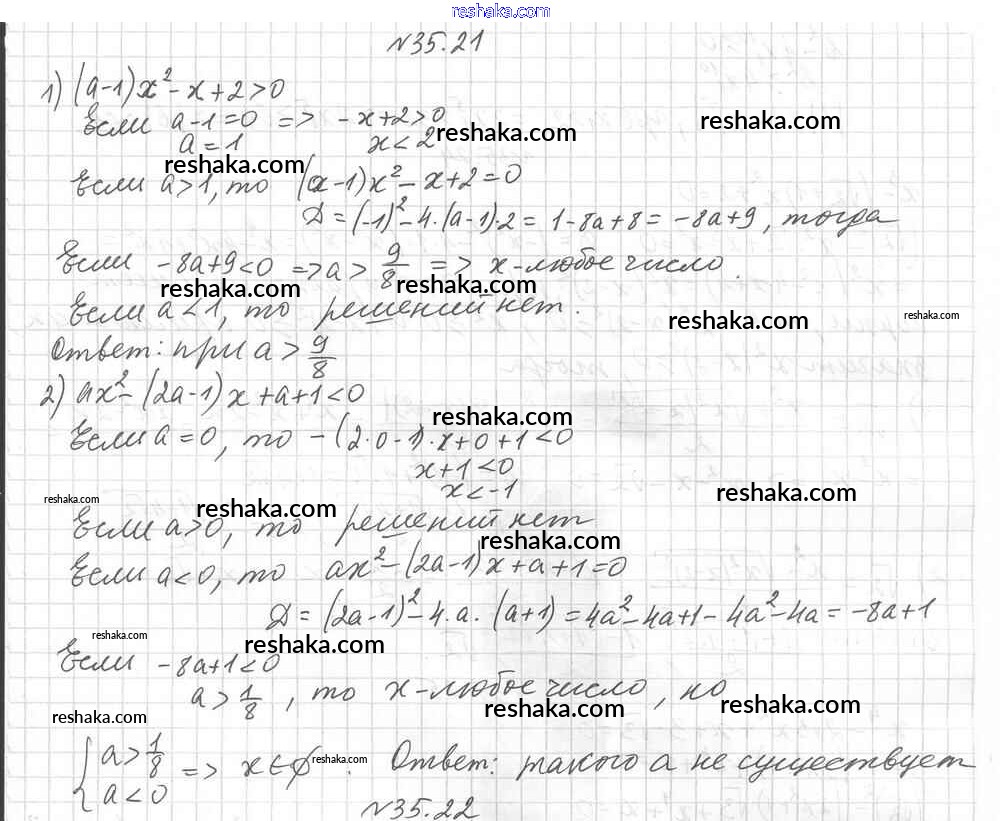 reshaka.com
№35.21
1) (a-1)x² - x + 2 > 0
Если a-1=0 => -x+2>0
a = 1 x < 2
reshaka.com
reshaka.com
reshaka.com
Если a>1, то (a-1)x² - x + 2 = 0
D = (-1)² - 4·(a-1)·2 = 1-8a+8 = -8a+9, тогда
Если -8a+9<0 => a > 9/8 => x-любое число.
reshaka.com reshaka.com
Если a<1, то решений нет.
reshaka.com reshaka.com
Ответ: при a > 9/8
2) ax² - (2a-1)x + a + 1 < 0
reshaka.com
Если a = 0, то - (2·0-1)·x + 0 + 1 < 0
x + 1 < 0
x < -1
reshaka.com
reshaka.com
reshaka.com
Если a>0, то решений нет
reshaka.com
Если a<0, то ax² - (2a-1)x + a + 1 = 0
D = (2a-1)² - 4·a·(a+1) = 4a² - 4a + 1 - 4a² - 4a = -8a + 1
reshaka.com
reshaka.com
Если -8a+1<0
a > 1/8, то x-любое число, но
reshaka.com reshaka.com reshaka.com
{ a > 1/8
a < 0 => x ∈ ∅. Ответ: такого a не существует
reshaka.com
№35.22